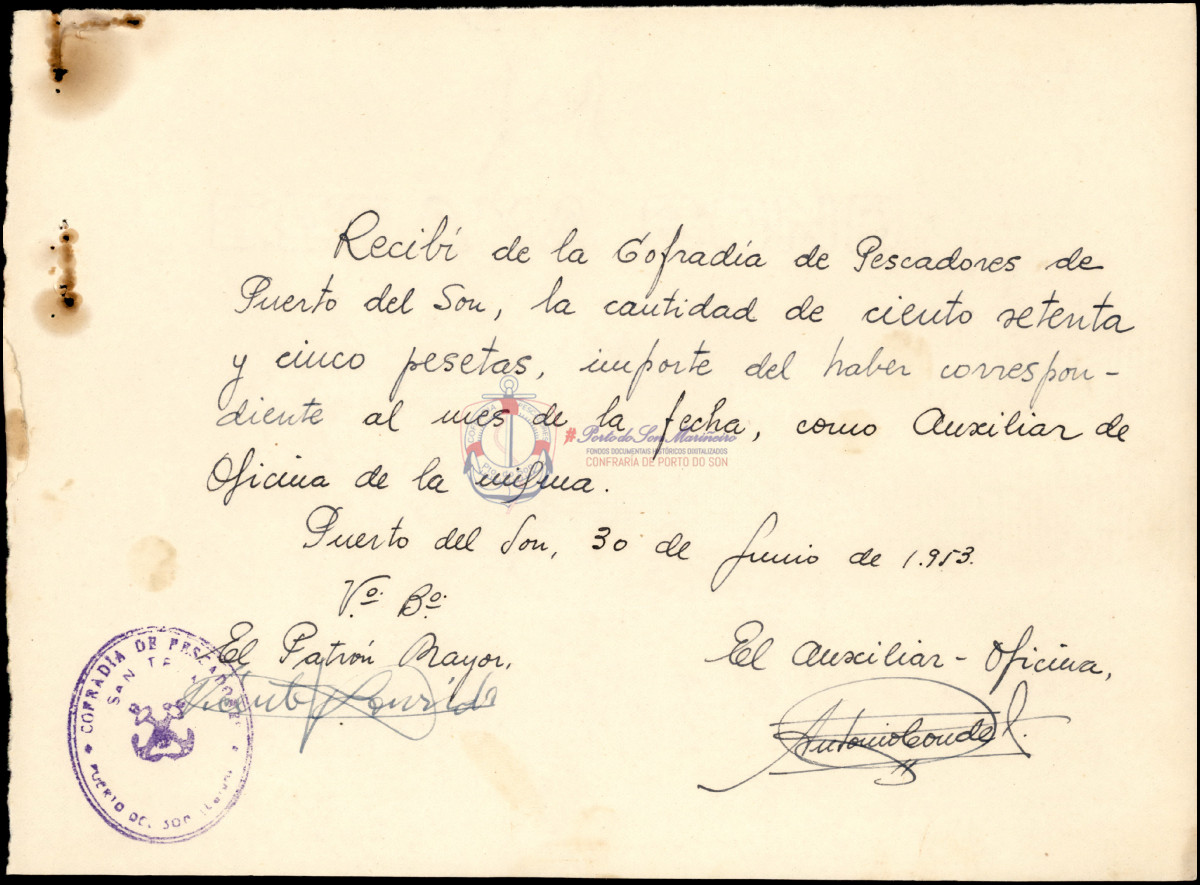 Recibí de la Cofradía de Pescadores de
Puerto del Son, la cantidad de ciento setenta
y cinco pesetas, importe del haber correspon-
diente al mes de la fecha, como Auxiliar de
Oficina de la misma.
#Porto do Son Mariñeiro
FONDOS DOCUMENTAIS HISTÓRICOS DIXITALIZADOS
CONFRARÍA DE PORTO DO SON
Puerto del Son, 30 de Junio de 1.953.
Vº. Bº.
El Patrón Mayor,
El Auxiliar-Oficina,
Antonio Conde
COFRADIA DE PESCADORES
SAN TE
PUERTO DEL SON